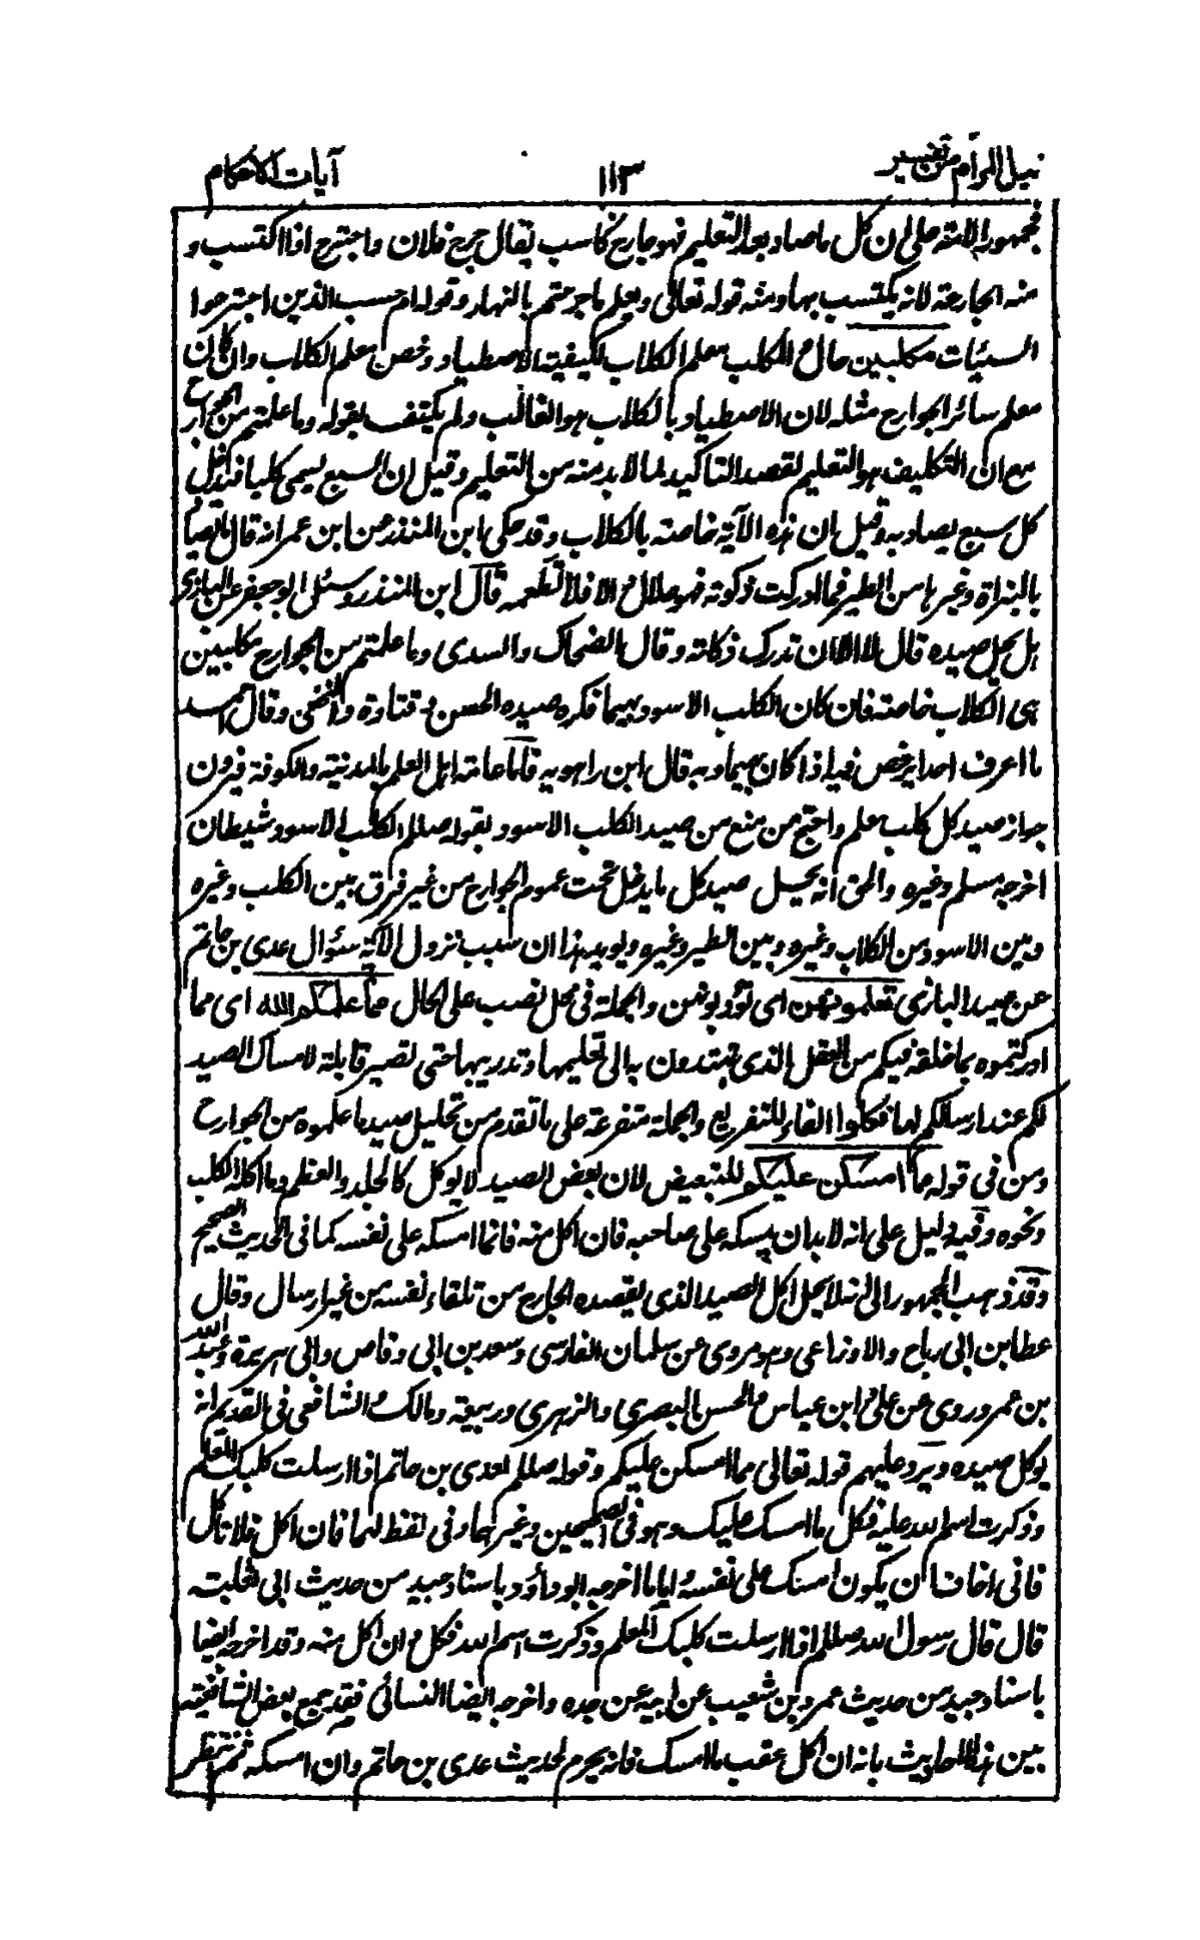 نيل المرام من تفسير ١١٣ آيات الاحكام
فجمهور الامة على ان كل ما صاد بعد التعليم فهو جارح كاسب يقال جرح فلان واجترح اذا اكتسب و
منه الجارحة لانه يكتسب بها ومنه قوله تعالى ويعلم ما جرحتم بالنهار وقوله ام حسب الذين اجترحوا
السيئات مكلبين حال والمكلب معلم الكلاب لكيفية الاصطياد وخص معلم الكلاب وان كان
معلم سائر الجوارح مثله لان الاصطياد بالكلاب هو الغالب ولم يكتف بقوله وما علمتم من الجوارح
مع ان التكليف هو التعليم لقصد التاكيد لما لا بد منه من التعليم وقيل ان السبع يسمى كلبا فيدخل
كل سبع يصاد به وقيل ان هذه الآية خاصة بالكلاب وقد حكى ابن المنذر عن ابن عمر انه قال ما يصاد
بالبزاة وغيرها من الطير فما ادركت ذكوته فهو حلال والا فلا تطعمه قال ابن المنذر وسئل ابو جعفر عن البازى
هل يحل صيده قال لا الا ان تدرك ذكاته وقال الضحاك والسدى وما علمتم من الجوارح مكلبين
هى الكلاب خاصة فان كان الكلب الاسود بهيما فكره صيده الحسن وقتادة والنخعى وقال احمد
ما اعرف احدا يرخص فيه اذا كان بهيما وبه قال ابن راهويه فاما عامة اهل العلم بالمدينة والكوفة فيرون
جواز صيد كل كلب معلم واحتج من منع من صيد الكلب الاسود بقوله صللم الكلب الاسود شيطان
اخرجه مسلم وغيره والحق انه يحل صيد كل ما يدخل تحت عموم الجوارح من غير فرق بين الكلب وغيره
وبين الاسود من الكلاب وغيره وبين الطير وغيره ويؤيد هذا ان سبب نزول الآية سؤال عدى بن حاتم
عن صيد البازى تعلمونهن اى تؤدبونهن والجملة فى محل نصب على الحال مما علمكم الله اى مما
ادركتموه بما خلقه فيكم من العقل الذى تهتدون به الى تعليمها وتدريبها حتى تصير قابلة لامساك الصيد
لكم عند ارسالكم لها فكلوا الفاء للتفريع والجملة متفرعة على ما تقدم من تحليل صيد ما علموه من الجوارح
ومن فى قوله مما امسكن عليكم للتبعيض لان بعض الصيد لا يوكل كالجلد والعظم وما اكله الكلب
ونحوه وفيه دليل على انه لا بد ان يمسكه على صاحبه فان اكل منه فانما امسكه على نفسه كما فى الحديث الصحيح
وقد ذهب الجمهور الى انه لا يحل اكل الصيد الذى يقصده الجارح من تلقاء نفسه من غير ارسال وقال
عطا بن ابى رباح والاوزاعى وهو مروى عن سلمان الفارسى وسعد بن ابى وقاص وابى هريرة وعبد الله
بن عمر وروى عن على وابن عباس والحسن البصرى والزهرى وربيعة ومالك والشافعى فى القديم انه
يوكل صيده ويرد عليهم قوله تعالى مما امسكن عليكم وقوله صللم لعدى بن حاتم اذا ارسلت كلبك المعلم
وذكرت اسم الله عليه فكل ما امسك عليك وهو فى الصحيحين وغيرهما وفى لفظ لهما فان اكل فلا تاكل
فانى اخاف ان يكون امسك على نفسه واما ما اخرجه ابو داؤد باسناد جيد من حديث ابى ثعلبة
قال قال رسول الله صللم اذا ارسلت كلبك المعلم وذكرت اسم الله فكل وان اكل منه وقد اخرجه ايضا
باسناد جيد من حديث عمرو بن شعيب عن ابيه عن جده واخرجه ايضا النسائى فقد جمع بعض الشافعية
بين هذه الاحاديث بانه ان اكل عقب ما امسك فانه يحرم لحديث عدى بن حاتم وان امسكه ثم انتظر